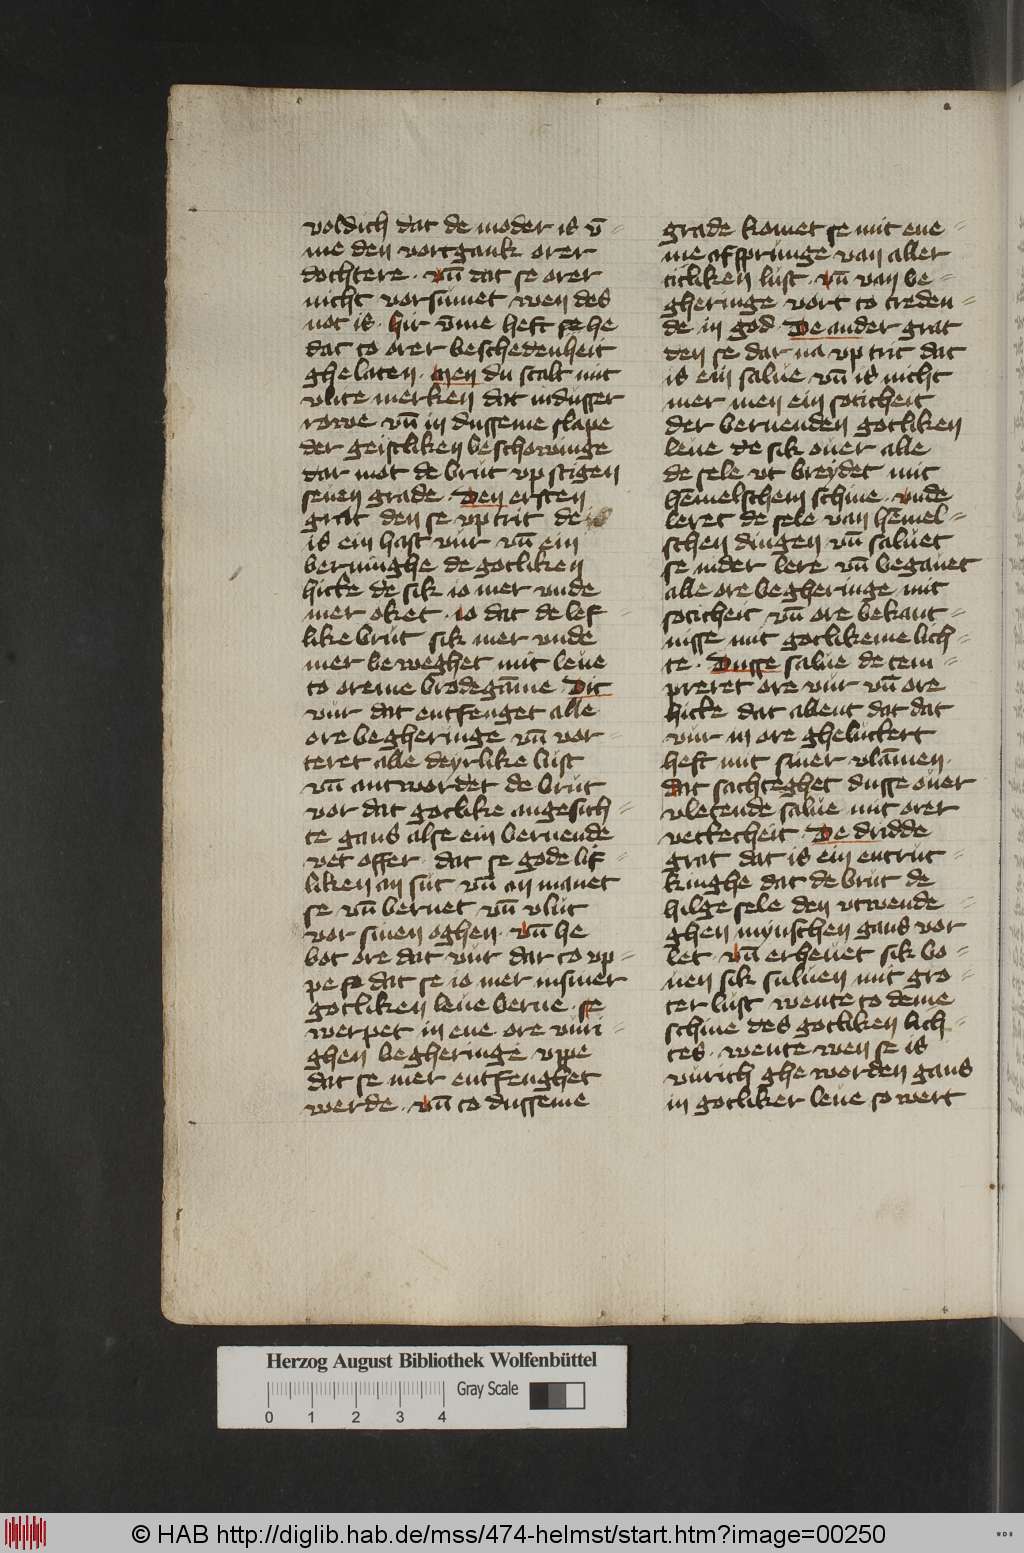 voldich dat de moder is v̄-
me den vortgank orer
dochtere. vn̄ dat se orer
nicht vorsumet wen des
not is. hir v̄me heft se he
dat to orer beschedenheit
ghelaten. Men du scalt mit
vlite merken dat indusser
rowe vn̄ in dusseme slape
der geistliken beschowinge
dar mot de brut vp stigen
seuen grade. Den ersten
grat den se vp trit de
is ein hast vur vn̄ ein
berninghe de gotliken
hicke de sik io mer vnde
mer oket. io dat de lef-
like brut sik mer vnde
mer beweghet mit leue
to oreme brodegāme Dit
vur dat entfenget alle
ore begheringe vn̄ vor-
teret alle deyrlike lust
vn̄ antwordet de brut
vor dat gotlike angesich-
te gans alse ein bernende
vet offer. dat se gode lif-
liken an sut vn̄ an manet
se vn̄ bernet vn̄ vlut
vor sinen oghen. vn̄ he
bot ore dat vur dar to vp-
pe so dat se io mer insiner
gotliken leue berne. se
werpet in ene ore vuri-
ghen begheringe vppe
dat se mer entfenghet
werde. vn̄ to dusseme
grade komet se mit ene-
me ofspringe van aller
titliken lust. vn̄ van be-
gheringe vort to treden-
de in god. De ander grat
den se dar na vp trit dat
is ein salue vn̄ is nicht
mer men ein soticheit
der bernenden gotliken
leue de sik ouer alle
de sele vt breydet mit
hēmelschem schine. vnde
leret de sele van hēmel-
schen dingen vn̄ saluet
se inder lere vn̄ begauet
alle ore begheringe mit
soticheit vn̄ ore bekant-
nisse mit gotlikeme lich-
te. Dusse salue de tem-
preret ore vur vn̄ ore
hicke dat allent dat dat
vur in ore gheluckert
heft mit siner vlāmen.
dat sachteghet dusse ouer
vletende salue mit orer
vetkecheit. De dridde
grat dat is ein entrut-
kinghe dat de brut de
hilge sele den vtwende-
ghen mynschen gans vor
let. vn̄ erheuet sik bo-
uen sik suluen mit gro-
ter lust wente to deme
schine des gotliken lich-
tes. wente wen se is
vurich gheworden gans
in gotliker leue so wert
Herzog August Bibliothek Wolfenbüttel
0 1 2 3 4 Gray Scale
© HAB http://diglib.hab.de/mss/474-helmst/start.htm?image=00250